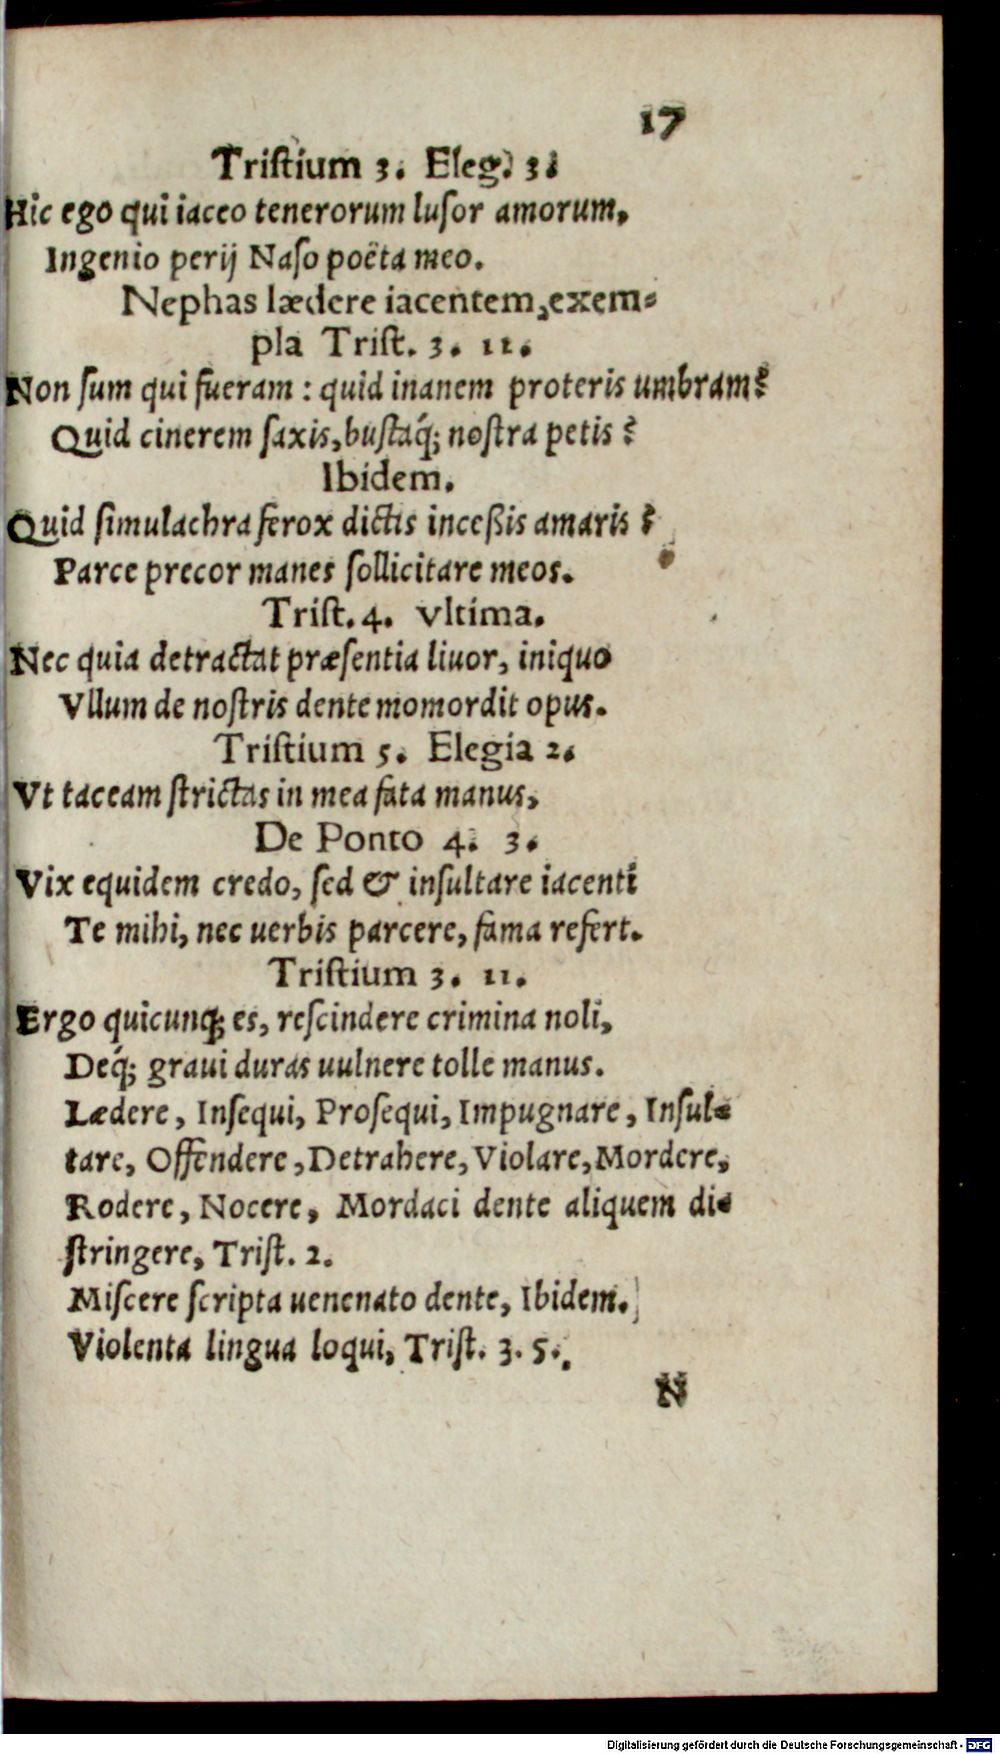 17
Tristium 3. Eleg. 3.
Hic ego qui iaceo tenerorum lusor amorum,
Ingenio perij Naso poëta meo.
Nephas lædere iacentem, exem-
pla Trist. 3. 11.
Non sum qui fueram: quid inanem proteris umbram?
Quid cinerem saxis, bustaq́; nostra petis?
Ibidem.
Quid simulachra ferox dictis inceßis amaris?
Parce precor manes sollicitare meos.
Trist. 4. vltima.
Nec quia detractat præsentia liuor, iniquo
Vllum de nostris dente momordit opus.
Tristium 5. Elegia 2.
Vt taceam strictas in mea fata manus,
De Ponto 4. 3.
Vix equidem credo, sed & insultare iacenti
Te mihi, nec uerbis parcere, fama refert.
Tristium 3. 11.
Ergo quicunq; es, rescindere crimina noli,
Deq́; graui duras uulnere tolle manus.
Lædere, Insequi, Prosequi, Impugnare, Insul-
tare, Offendere, Detrahere, Violare, Mordere,
Rodere, Nocere, Mordaci dente aliquem di-
stringere, Trist. 2.
Miscere scripta uenenato dente, Ibidem.
Violenta lingua loqui, Trist. 3. 5.
N
Digitalisierung gefördert durch die Deutsche Forschungsgemeinschaft - DFG